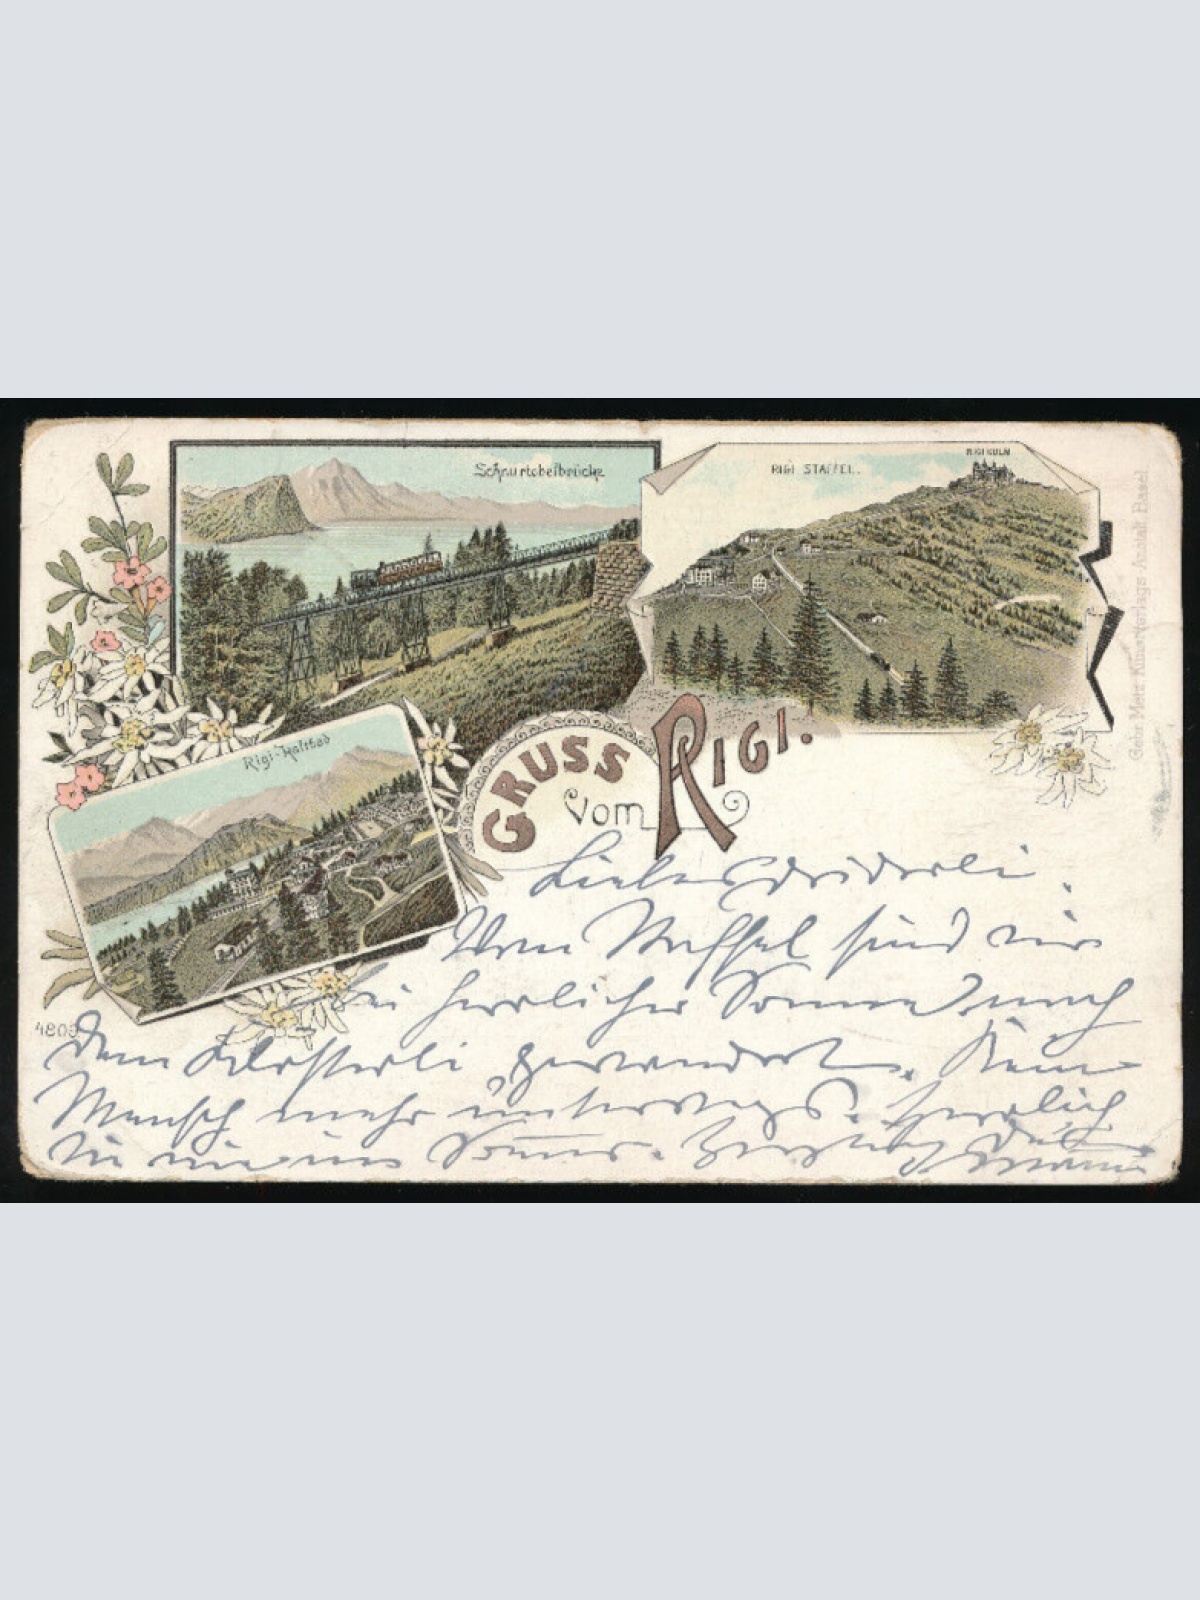 Schnurtobelbrücke
RIGI STAFFEL.
RIGI KULM
Rigi-Kaltbad
GRUSS
vom
RIGI.
Gebr. Metz Kunst-Verlags-Anstalt, Basel.
4809
Liebes
Vom Staffel sind wir
in herrlicher Sonne nach
dem Klösterli gewandert. Kein
Mensch mehr unterwegs. Herrlich